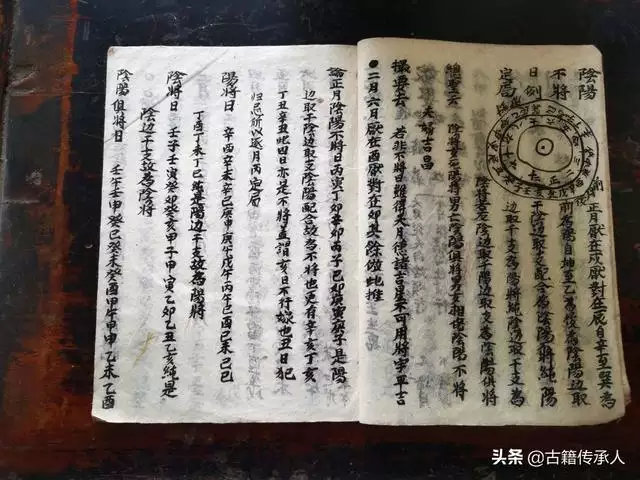 陰陽
不將
日例
定局
正月厭在戌厭對在辰自辛至巽為
前為陽自坤至乙為後為陰陽邊取
干陰邊取支配合為陰陽不將純陽
邊取干支為陽將純陰邊取干支為
陰將若陰邊取干陽邊取支為陰陽俱將
總要云 陰將子亡陽將男亡陰陽俱將男女相傷陰陽不將
夫婦吉昌
撮要云 若非不將日難得天月德諸吉星不可用將字平吉
●二月六月厭在酉厭對在卯其餘倣此推
論正月陰陽不將日丙寅丁卯丑卯丙子己卯庚寅庚子是陽
邊取干陰邊取支陰陽配合故為不將也更有辛亥丁亥
丁丑辛丑此四日亦是不將蓋謂亥日不行嫁也丑日犯
归忌所以逐月丙定局
陽將日 辛酉辛未辛巳庚申庚戌午丙午己酉己未己巳
丁酉丁未丁巳純是陽邊干支故為陽將
陰將日 壬子壬寅癸卯癸亥甲子甲寅乙卯乙丑乙亥純是
陰边干支故為陰將
陰陽俱將日 壬午壬申癸巳癸未癸酉甲午甲申乙未乙酉
头条@古籍传承人